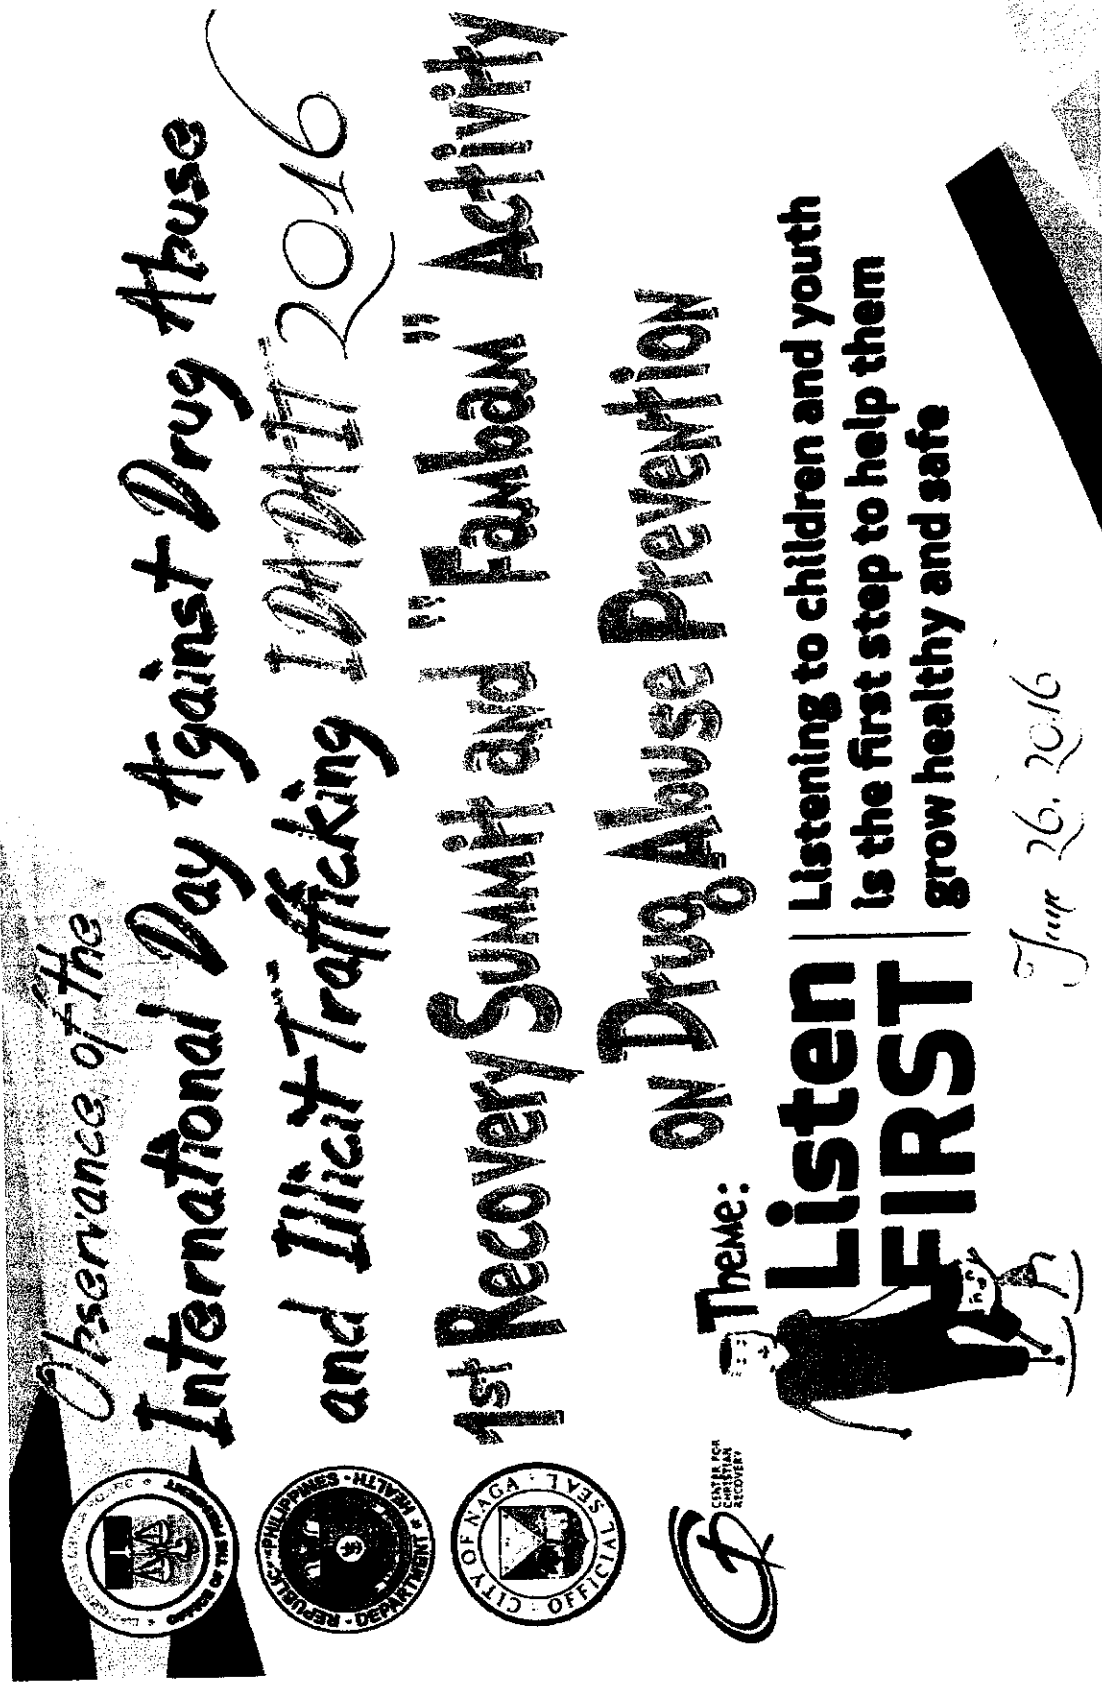 Observance of the
International Day Against Drug Abuse
and Illicit Trafficking IDADAIT 2016
1st Recovery Summit and "Fambam" Activity
on Drug Abuse Prevention
Theme:
Listen
FIRST
Listening to children and youth
is the first step to help them
grow healthy and safe
June 26, 2016
OFFICE OF THE PRESIDENT
REPUBLIC PHILIPPINES
DEPARTMENT HEALTH
CITY OF NAGA
OFFICIAL SEAL
CENTER FOR
CHRISTIAN
RECOVERY